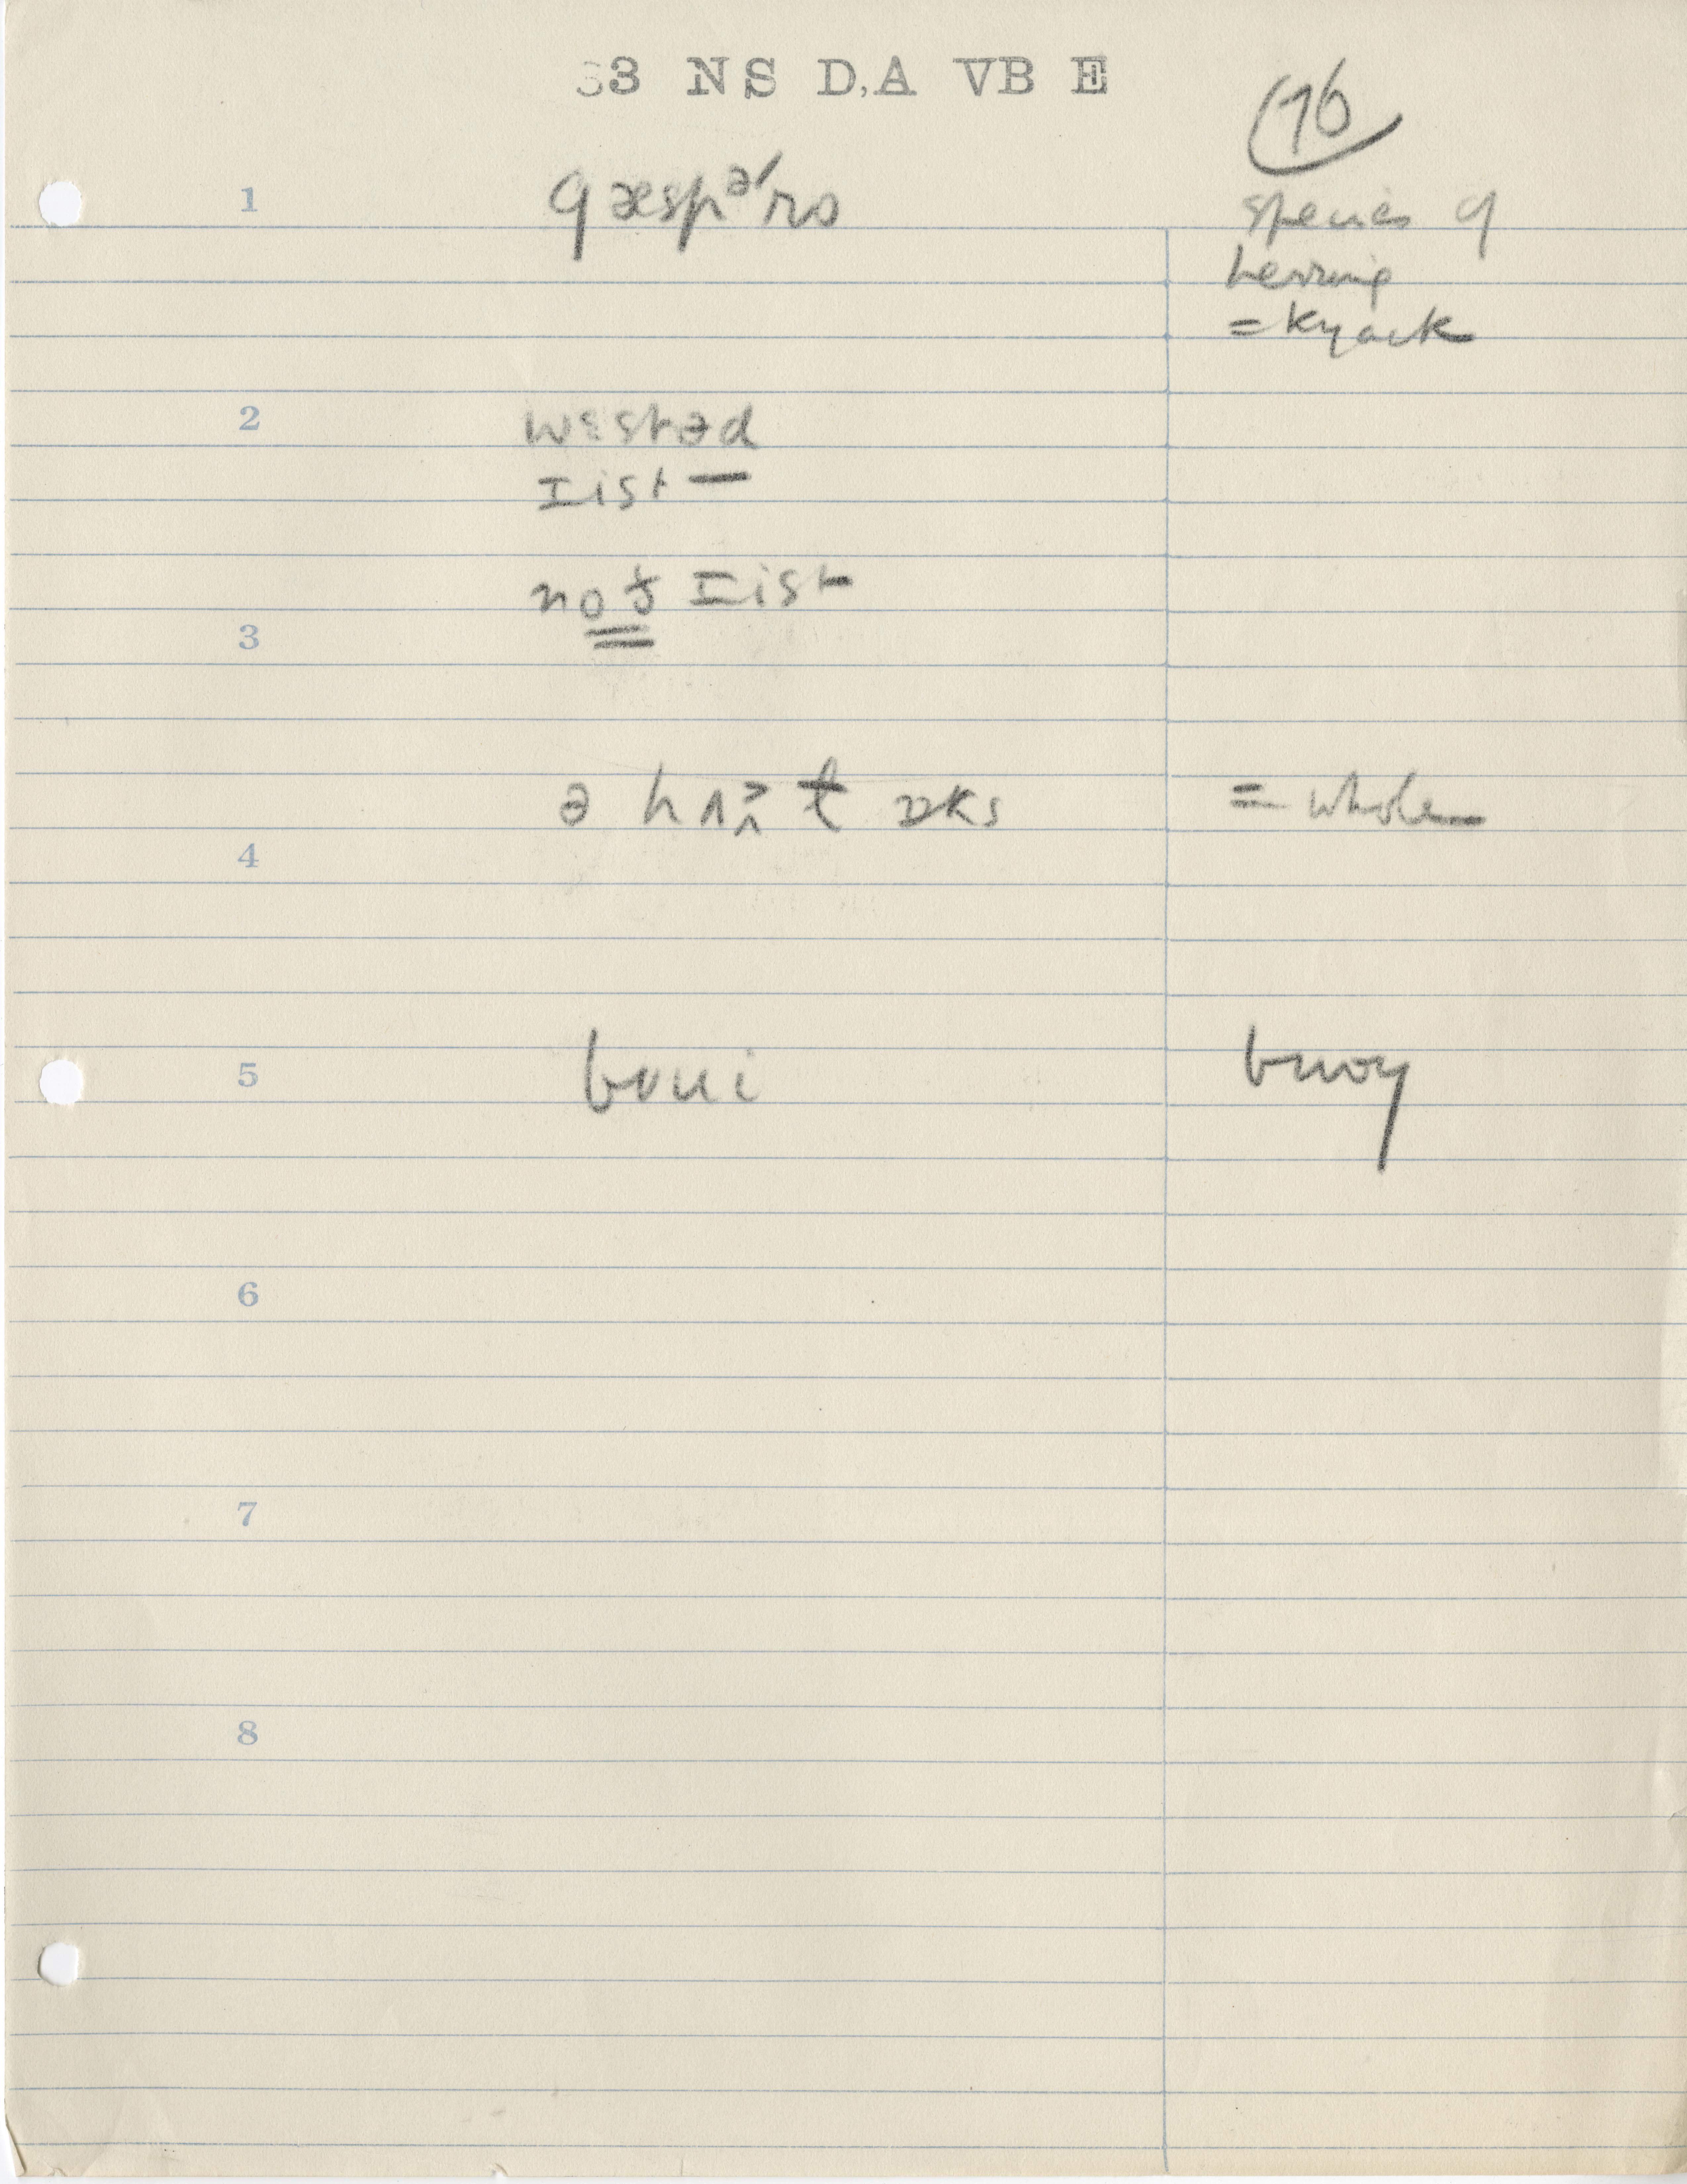 33 NS D,A VB E
76
1 gæspə'ro species of
herring
= kyack
2 wɛstəd
ɪist —
ɪist
3
ə hʌ t ɒks = whole
4
5 buui buoy
6
7
8